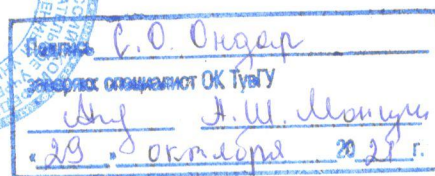 Подпись С.О. Ондар
заверяю: специалист ОК ТувГУ
А.Ш. Монгуш
«29» октября 2021 г.